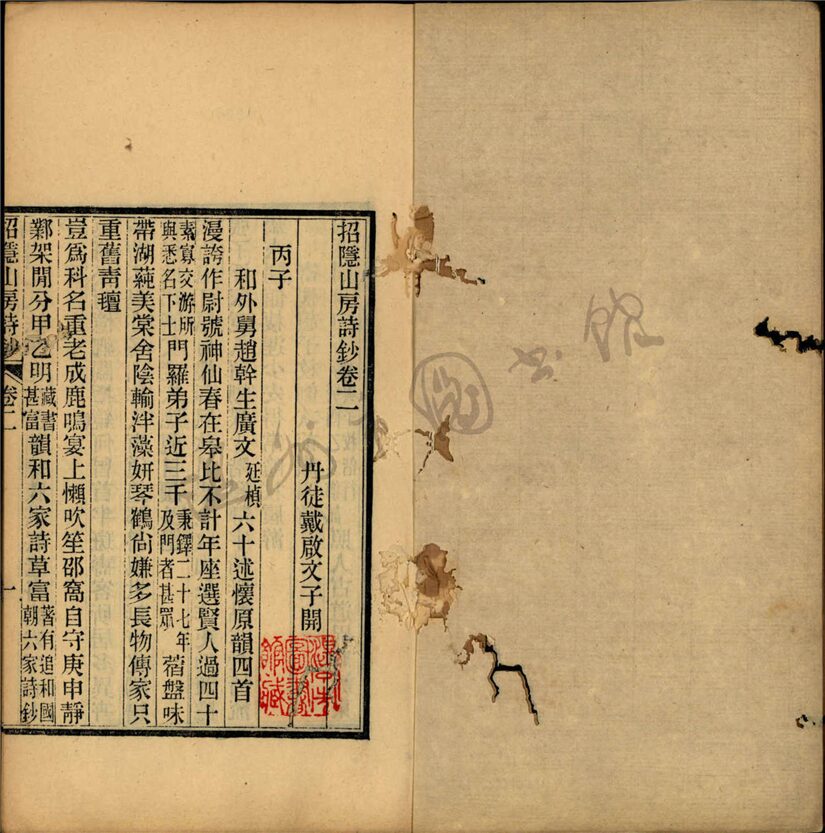 招隱山房詩鈔卷二
丹徒戴啟文子開
丙子
和外舅趙幹生廣文延楨六十述懷原韻四首
漫誇作尉號神仙春在皋比不計年座選賢人過四十
素寡交游所與悉名下士門羅弟子近三千秉鐸二十七年及門者甚眾蓿盤味
帶湖蒓美棠舍陰輸泮藻妍琴鶴尙嫌多長物傳家只
重舊靑氊
豈爲科名重老成鹿鳴宴上懶吹笙邵窩自守庚申靜
鄴架閒分甲乙明藏書甚富韻和六家詩草富著有追和國朝六家詩鈔
招隱山房詩鈔 卷二 一